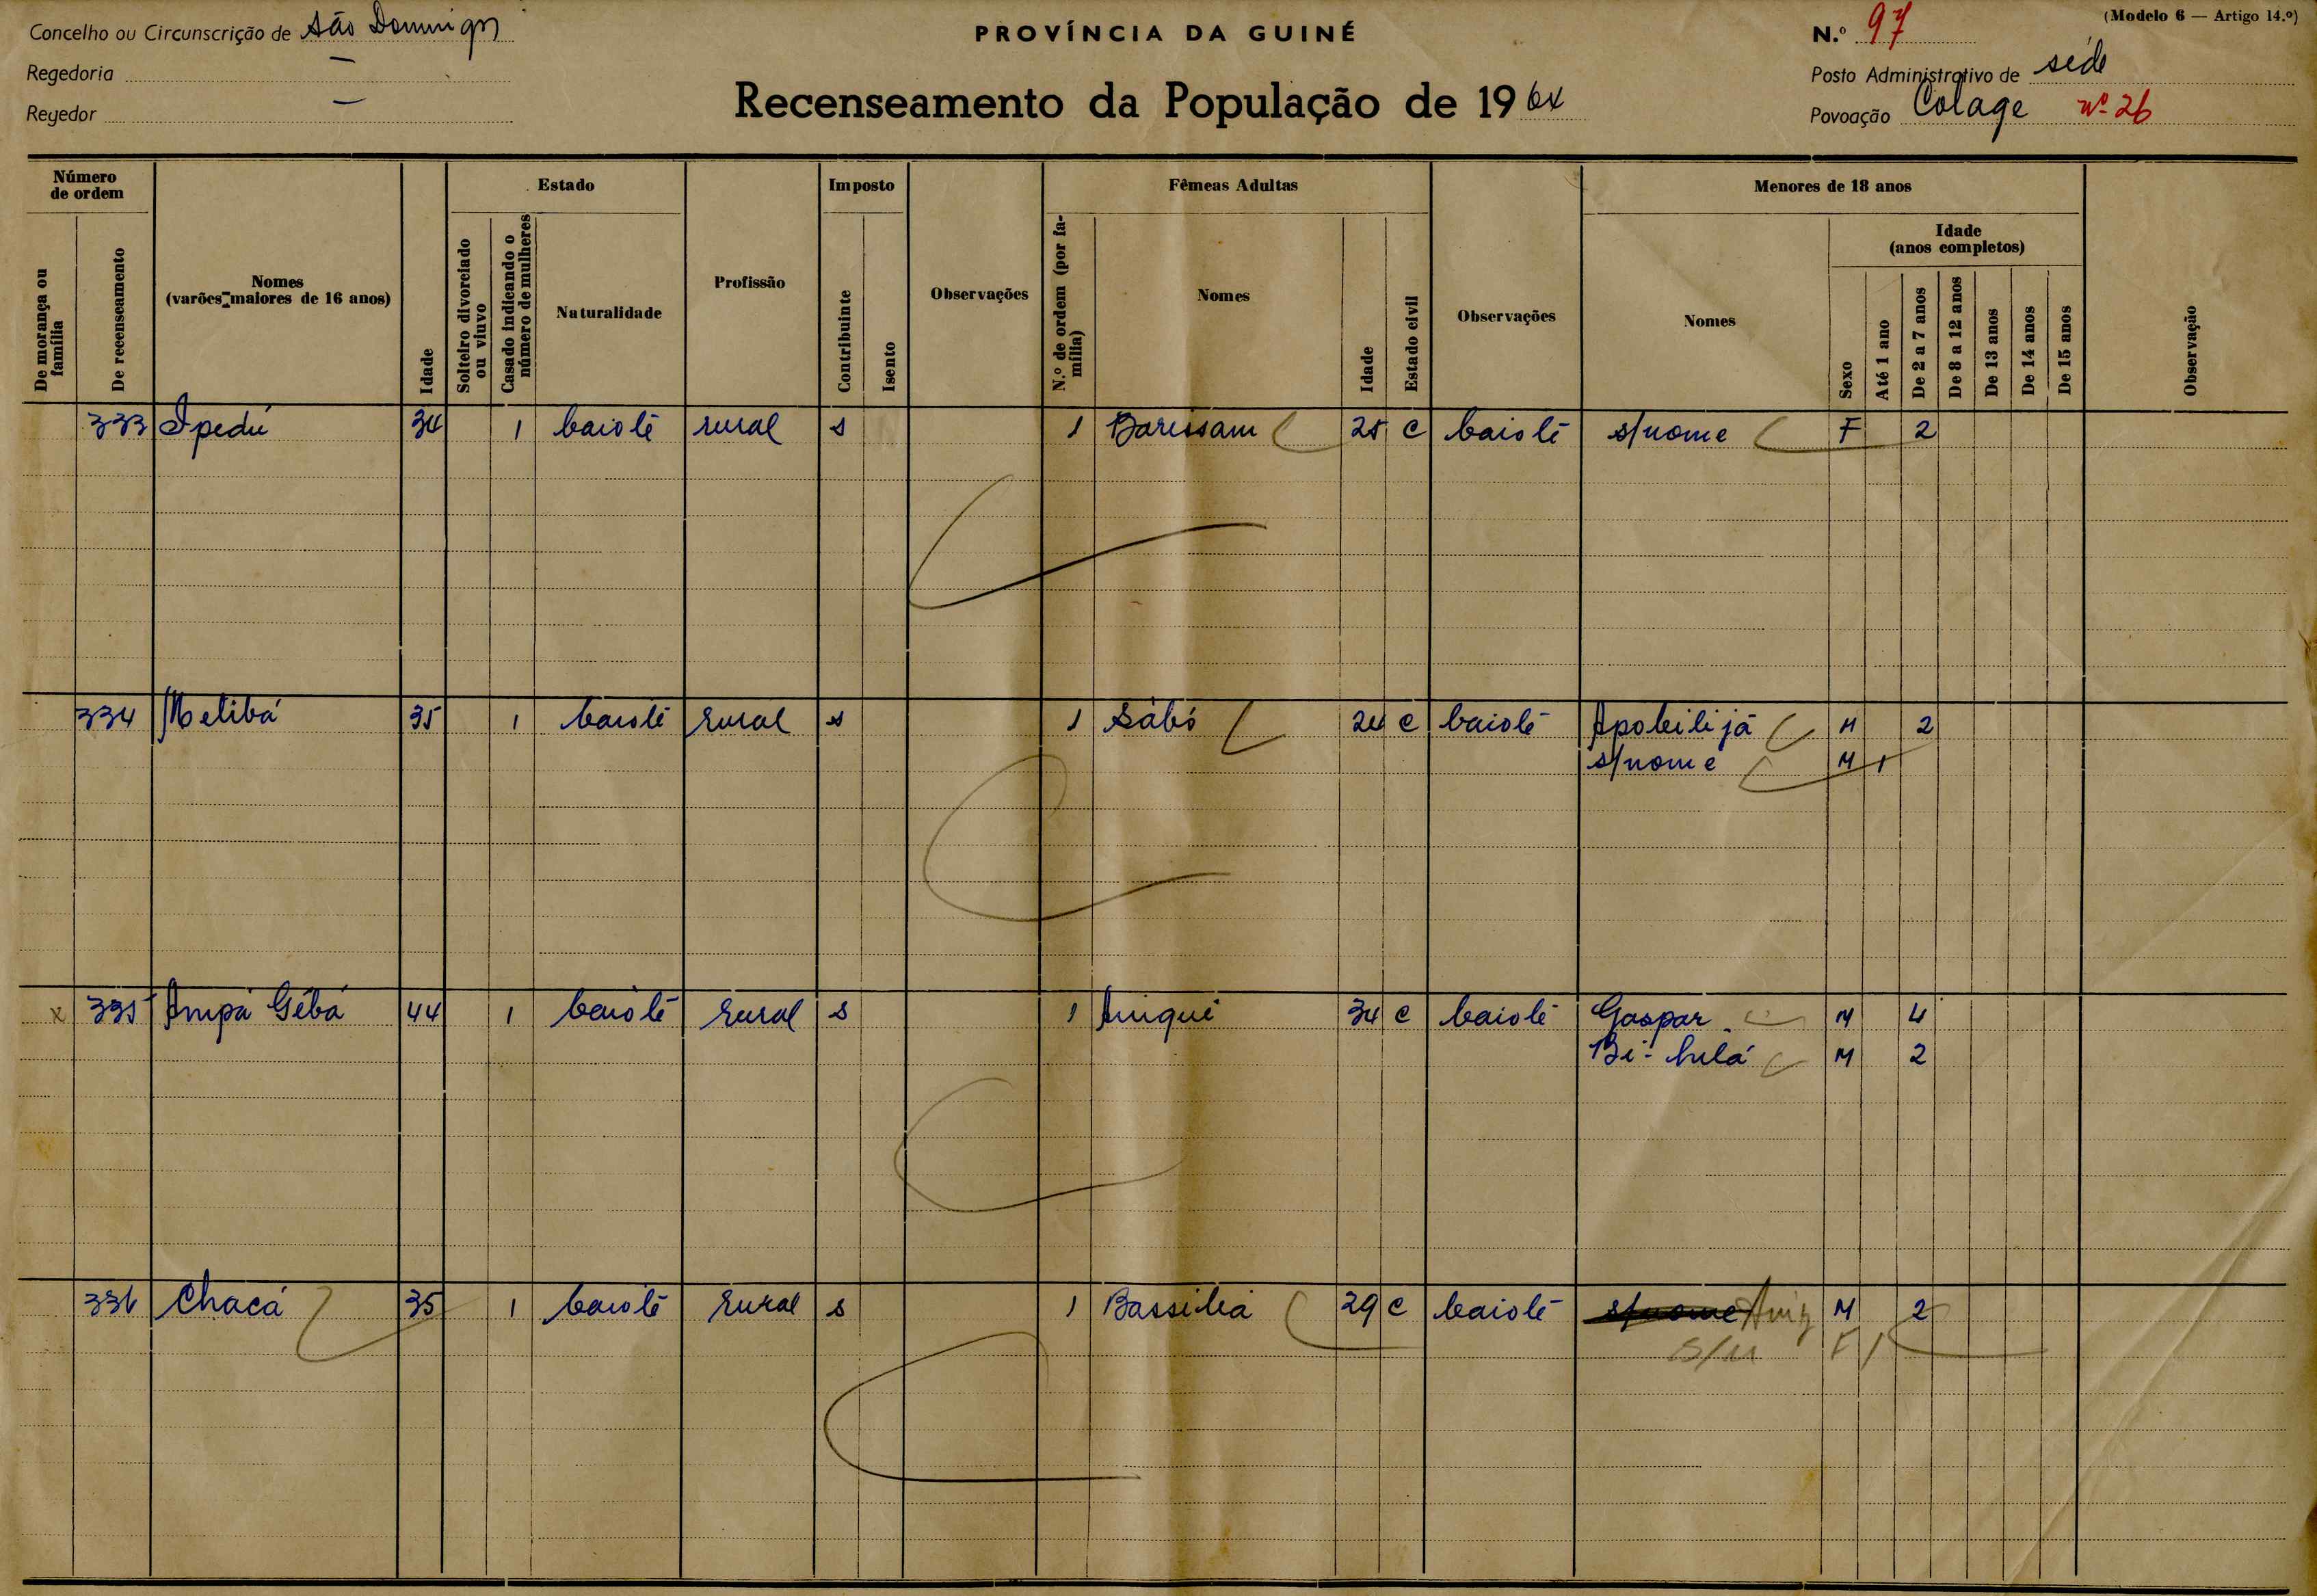 (Modelo 6 — Artigo 14.º)
Concelho ou Circunscrição de São Domingos
PROVÍNCIA DA GUINÉ
N.º 97
Regedoria —
Posto Administrativo de sede
Regedor —
Recenseamento da População de 1964
Povoação Colage nº 26
Número de ordem
De morança ou família
De recenseamento
Nomes (varões maiores de 16 anos)
Idade
Estado
Solteiro divorciado ou viuvo
Casado indicando o número de mulheres
Naturalidade
Profissão
Imposto
Contribuinte
Isento
Observações
Fêmeas Adultas
N.º de ordem (por família)
Nomes
Idade
Estado civil
Observações
Menores de 18 anos
Nomes
Sexo
Idade (anos completos)
Até 1 ano
De 2 a 7 anos
De 8 a 12 anos
De 13 anos
De 14 anos
De 15 anos
Observação
333 Ipedú 34 1 baiote rural s 1 Barissam 25 c baiote s/nome F 2
334 Melibá 35 1 baiote rural s 1 Sábó 24 c baiote Apobilijá M 2
s/nome M 1
x 335 Ampá Gébá 44 1 baiote rural s 1 Aniqui 34 c baiote Gaspar M 4
M 2
336 Chacá 35 1 baiote rural s 1 29 c baiote s/nome M 2
S/n F 1